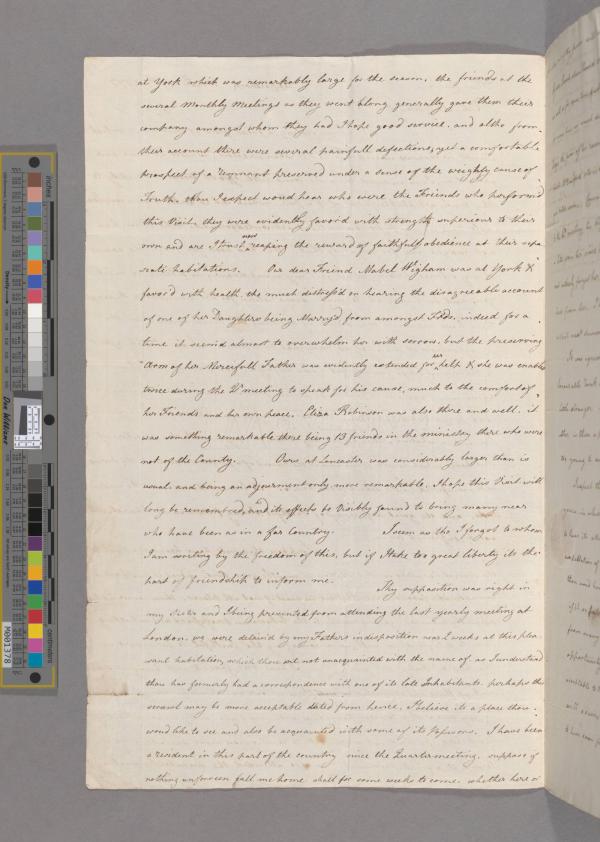 at York which was remarkably large for the season, the friends at the
several Monthly Meetings as they went along generally gave them their
company amongst whom they had I hope good service, and altho from
their account there were several painfull defections, yet a comfortable
prospect of a remnant preserved under a sense of the weighty cause of
Truth. thou I expect would hear who were the Friends who perform'd
this Visit, they were evidently favor'd with strength superious to their
own and are I trust now reaping the reward of faithfull obedience at their sepa
rate habitations. Our dear Friend Mabel Wigham was at York &
favor'd with health, tho much distress'd on hearing the disagreeable account
of one of her Daughters being Marry'd from amongst Frds. indeed for a
time it seem'd almost to overwhelm her with sorrow, but the preserving
Arm of her Mercifull Father was evidently extended for her help & she was enabled
twice during the Qr. meeting to speak for his cause, much to the comfort of
her Friends and her own peace. Eliza Robinson was also there and well. it
was something remarkable there being 13 friends in the ministry there who were
not of the County. Ours at Lancaster was considerably larger than is
usual and being an adjournment only more remarkable. I hope this Visit will
long be remembred, and its effects be Visibly found to bring many near
who have been as in a far Country. I seem as tho I forgot to whom
I am writing by the freedom of this, but if I take too great liberty its the
part of friendship to inform me. Thy supposition was right in
my Sister and I being prevented from attending the last yearly meeting at
London. we were detain'd by my Fathers indisposition near 2 weeks at this plea
sant habitation, which thou art not unacquainted with the name of. as I understand
thou has formerly had a correspondence with one of its late Inhabitants. perhaps this
scrawl may be more acceptable dated from hence, I believe its a place thou
would like to see and also be acquainted with some of its possessors. I have been
a resident in this part of the country since the Quarter meeting. suppose if
nothing unforeseen call me home shall for some weeks to come. whether here or
inches
centimeters
Don Williams
M001378